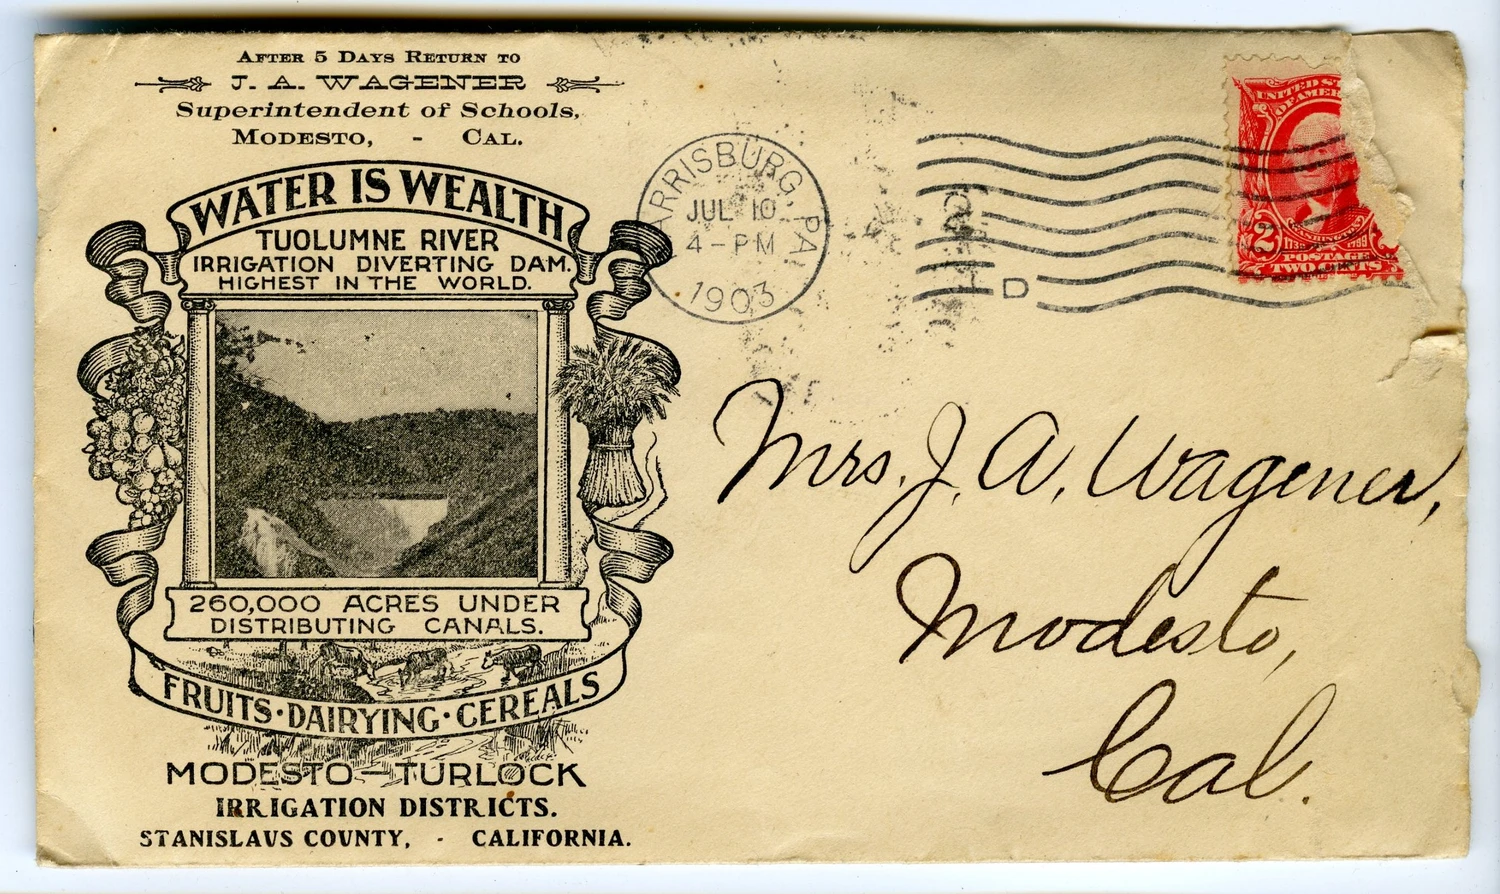 AFTER 5 DAYS RETURN TO
J. A. WAGENER
Superintendent of Schools,
MODESTO, - CAL.
WATER IS WEALTH
TUOLUMNE RIVER
IRRIGATION DIVERTING DAM.
HIGHEST IN THE WORLD.
260,000 ACRES UNDER
DISTRIBUTING CANALS.
FRUITS·DAIRYING·CEREALS
MODESTO—TURLOCK
IRRIGATION DISTRICTS.
STANISLAUS COUNTY, - CALIFORNIA.
ARRISBURG, PA
JUL 10
4-PM
1903
D
UNITED ST
OF AMER
WASHINGTON
1732 1799
2
POSTAGE
TWO CENTS
Mrs. J. A. Wagener,
Modesto,
Cal.